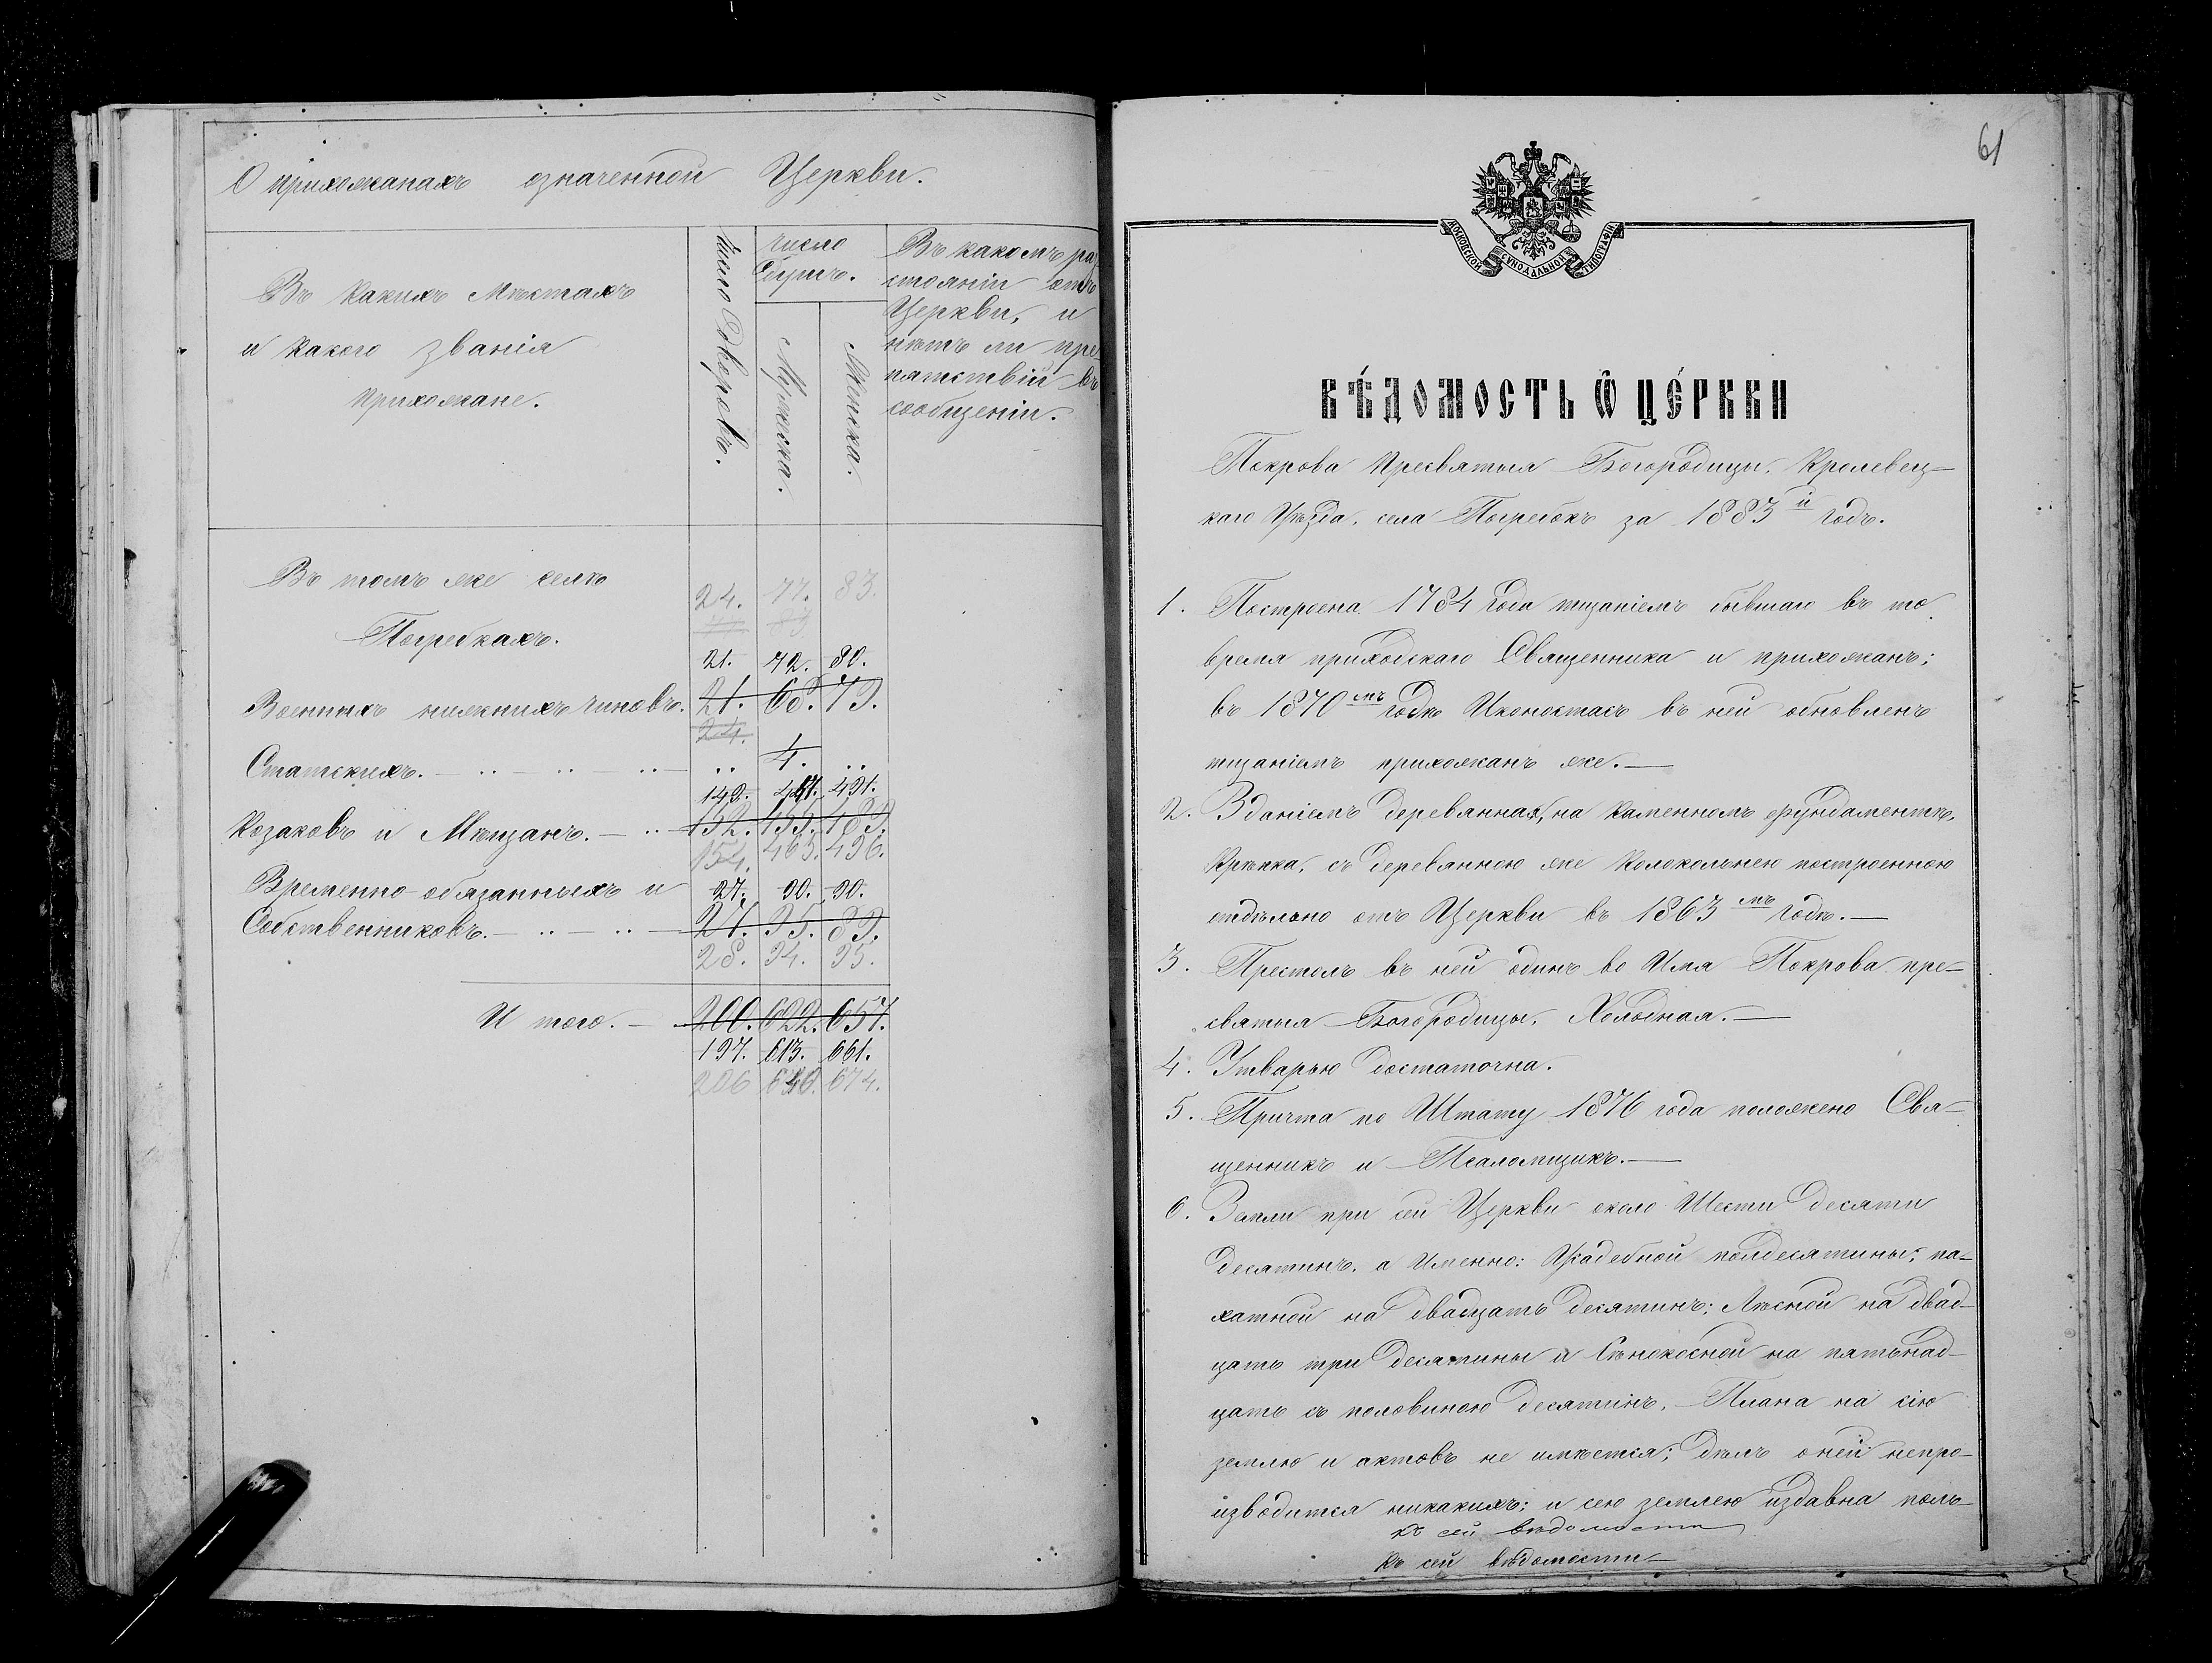 О прихожанахъ означенной Церкви.
Въ какихъ мѣстахъ
и какого званія
прихожане.
Число дворовъ.
Число
душъ.
Мужеска.
Женска.
Въ какомъ ра-
стояніи отъ
Церкви, и
нѣтъ ли пре-
пятствій въ
сообщеніи.
Въ томъ же селѣ
24. 77. 83.
Погребкахъ.
21. 72. 80.
Военныхъ нижнихъ чиновъ. 21. 68. 79.
24.
Статскихъ. .. 4. ..
149. 447. 491.
Козаковъ и Мѣщанъ. 152.
154. 465. 496.
Временно-обязанныхъ и 27. 90. 90.
Собственниковъ. 27. 95. 89.
28. 94. 95.
И того. 200. 622. 657.
197. 613. 661.
206 640. 674.
61
МОСКОВСКОЙ СѴНОДАЛЬНОЙ ТИПОГРАФІИ
ВѢ́ДОМОСТЬ Ѿ ЦЕ́РКВИ
Покрова Пресвятыя Богородицы, Кролевец-
каго Уѣзда, села Погребокъ за 1883й годъ.
1. Построена 1784 года тщаніемъ бывшаго въ то
время приходскаго Священника и прихожанъ;
въ 1870мъ годѣ Иконостасъ въ ней обновленъ
тщаніемъ прихожанъ же.
2. Зданіемъ деревянная, на каменномъ фундаментѣ,
крѣпка, съ деревянною же колокольнею построенною
отдѣльно отъ Церкви въ 1863мъ годѣ.
3. Престолъ въ ней одинъ во Имя Покрова пре-
святыя Богородицы, Холодная.
4. Утварью достаточна.
5. Причта по Штату 1876 года положено Свя-
щенникъ и Псаломщикъ.
6. Земли при сей Церкви около Шести десяти
десятинъ, а Именно: Усадебной полдесятины; па-
хатной на двадцать десятинъ; Лѣсной на двад-
цать три десятины и Сѣнокосной на пятьнад-
цать съ половиною десятинъ. Плана на сію
землю и актовъ не имѣется; дѣлъ о ней непро-
изводится никакихъ; и сею землею издавна поль-
къ сей вѣдомости
Къ сей вѣдомости